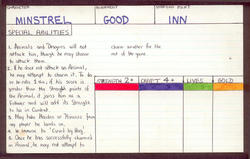 CHARACTER
ALIGNMENT
START
MINSTREL
GOOD
INN
SPECIAL ABILITIES
1. Animals and Dragons will not
attack him, though he may choose
to attack them.
2. If he does not attack an Animal,
he may attempt to charm it. To do
so he rolls 1 die, if his score is
greater than the Strength points of
the Animal, it joins him as a
Follower and will add its Strength
to his in Combat.
3. May take Maiden or Princess from
any player he lands on.
4. Is immune to
5. Once he has successfully charmed
an Animal, he may not attempt to
charm another for the
rest of the game.
STRENGTH 2
CRAFT 4
LIVES
GOLD